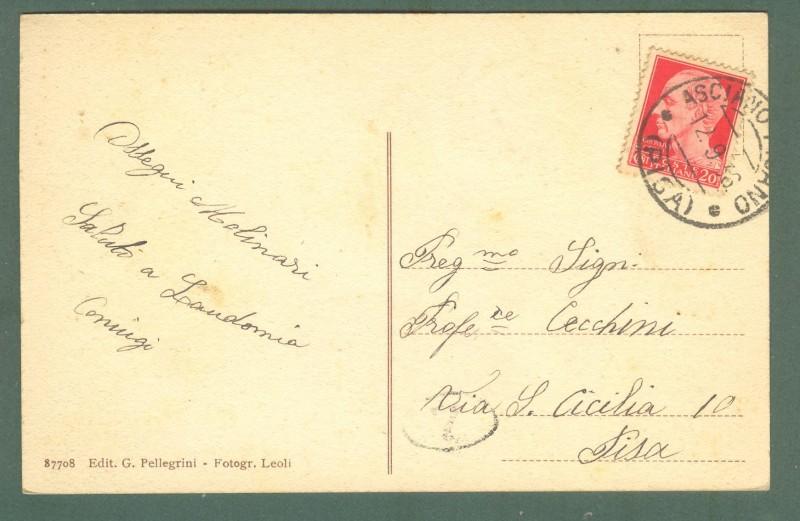 Allegri Molinari
Saluti a Laudomia
Coniugi
Preg mo Sign.
Profe re Cecchini
Via S. Cicilia 10
Pisa
ASCIANO PISANO
(PISA)
POSTE ITALIANE
20
87708 Edit. G. Pellegrini - Fotogr. Leoli